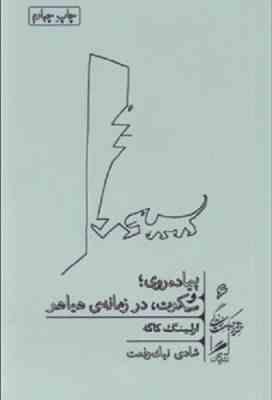 چاپ چهارم
پیاده‌روی؛
و
سکوت، در زمانه‌ی هیاهو
ارلینگ کاگه
شادی نیک‌رفعت